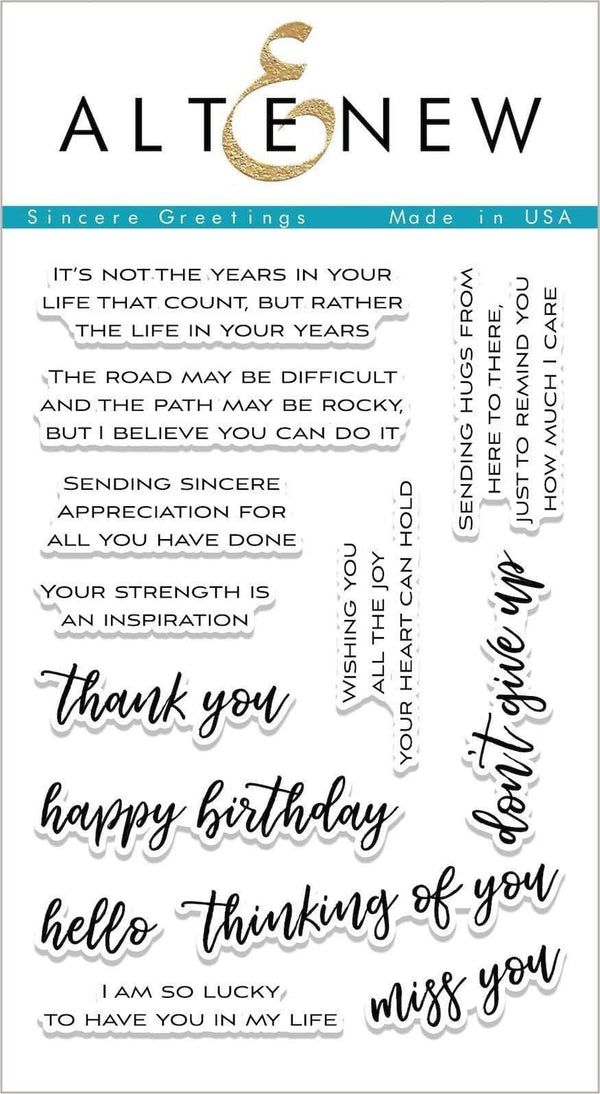 ALTENEW
Sincere Greetings
Made in USA
IT'S NOT THE YEARS IN YOUR
LIFE THAT COUNT, BUT RATHER
THE LIFE IN YOUR YEARS
THE ROAD MAY BE DIFFICULT
AND THE PATH MAY BE ROCKY,
BUT I BELIEVE YOU CAN DO IT
SENDING SINCERE
APPRECIATION FOR
ALL YOU HAVE DONE
YOUR STRENGTH IS
AN INSPIRATION
SENDING HUGS FROM
HERE TO THERE,
JUST TO REMIND YOU
HOW MUCH I CARE
WISHING YOU
ALL THE JOY
YOUR HEART CAN HOLD
don't give up
thank you
happy birthday
hello
thinking of you
I AM SO LUCKY
TO HAVE YOU IN MY LIFE
miss you